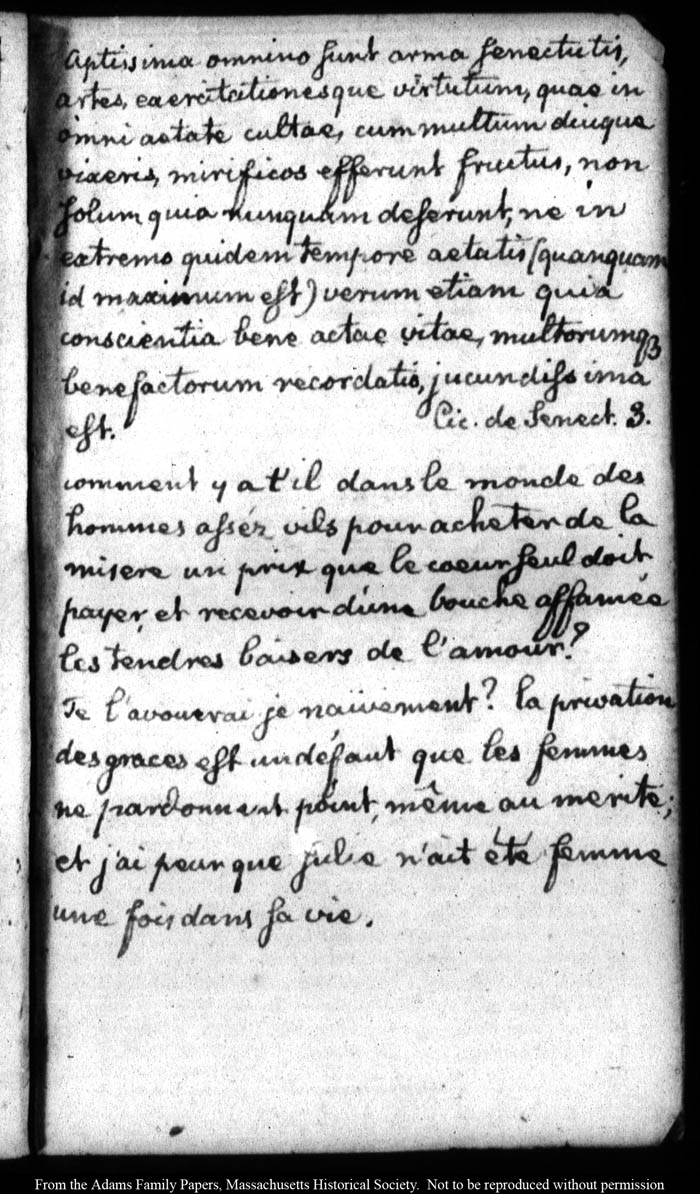 Aptissima omnino sunt arma senectutis,
artes, exercitationesque virtutum, quae in
omni aetate cultae, cum multum diuque
vixeris, mirificos efferunt fructus, non
solum quia nunquam deserunt, ne in
extremo quidem tempore aetatis (quanquam
id maximum est) verum etiam quia
conscientia bene actae vitae, multorumqꝫ
benefactorum recordatio, jucundissima
est. Cic. de Senect. 3.
comment y a t'il dans le monde des
hommes asséz vils pour acheter de la
misere un prix que le coeur seul doit
payer, et recevoir d'une bouche affamée
les tendres baisers de l'amour?
Te l'avouerai je naïvement? la privation
des graces est un défaut que les femmes
ne pardonnent point, même au merite;
et j'ai peur que Julie n'ait été femme
une fois dans sa vie.
From the Adams Family Papers, Massachusetts Historical Society. Not to be reproduced without permission